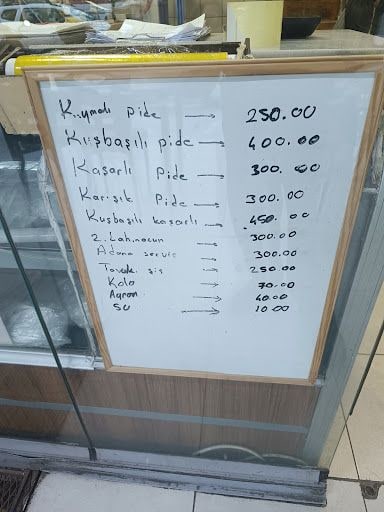 Kıymalı Pide → 250.00
Kuşbaşılı pide → 400.00
Kaşarlı Pide → 300.00
Karışık Pide → 300.00
Kuşbaşılı kaşarlı → 450.00
2. Lahmacun → 300.00
Adana servis → 300.00
Tavuk şiş → 250.00
Kola → 70.00
Ayran → 40.00
SU → 10.00